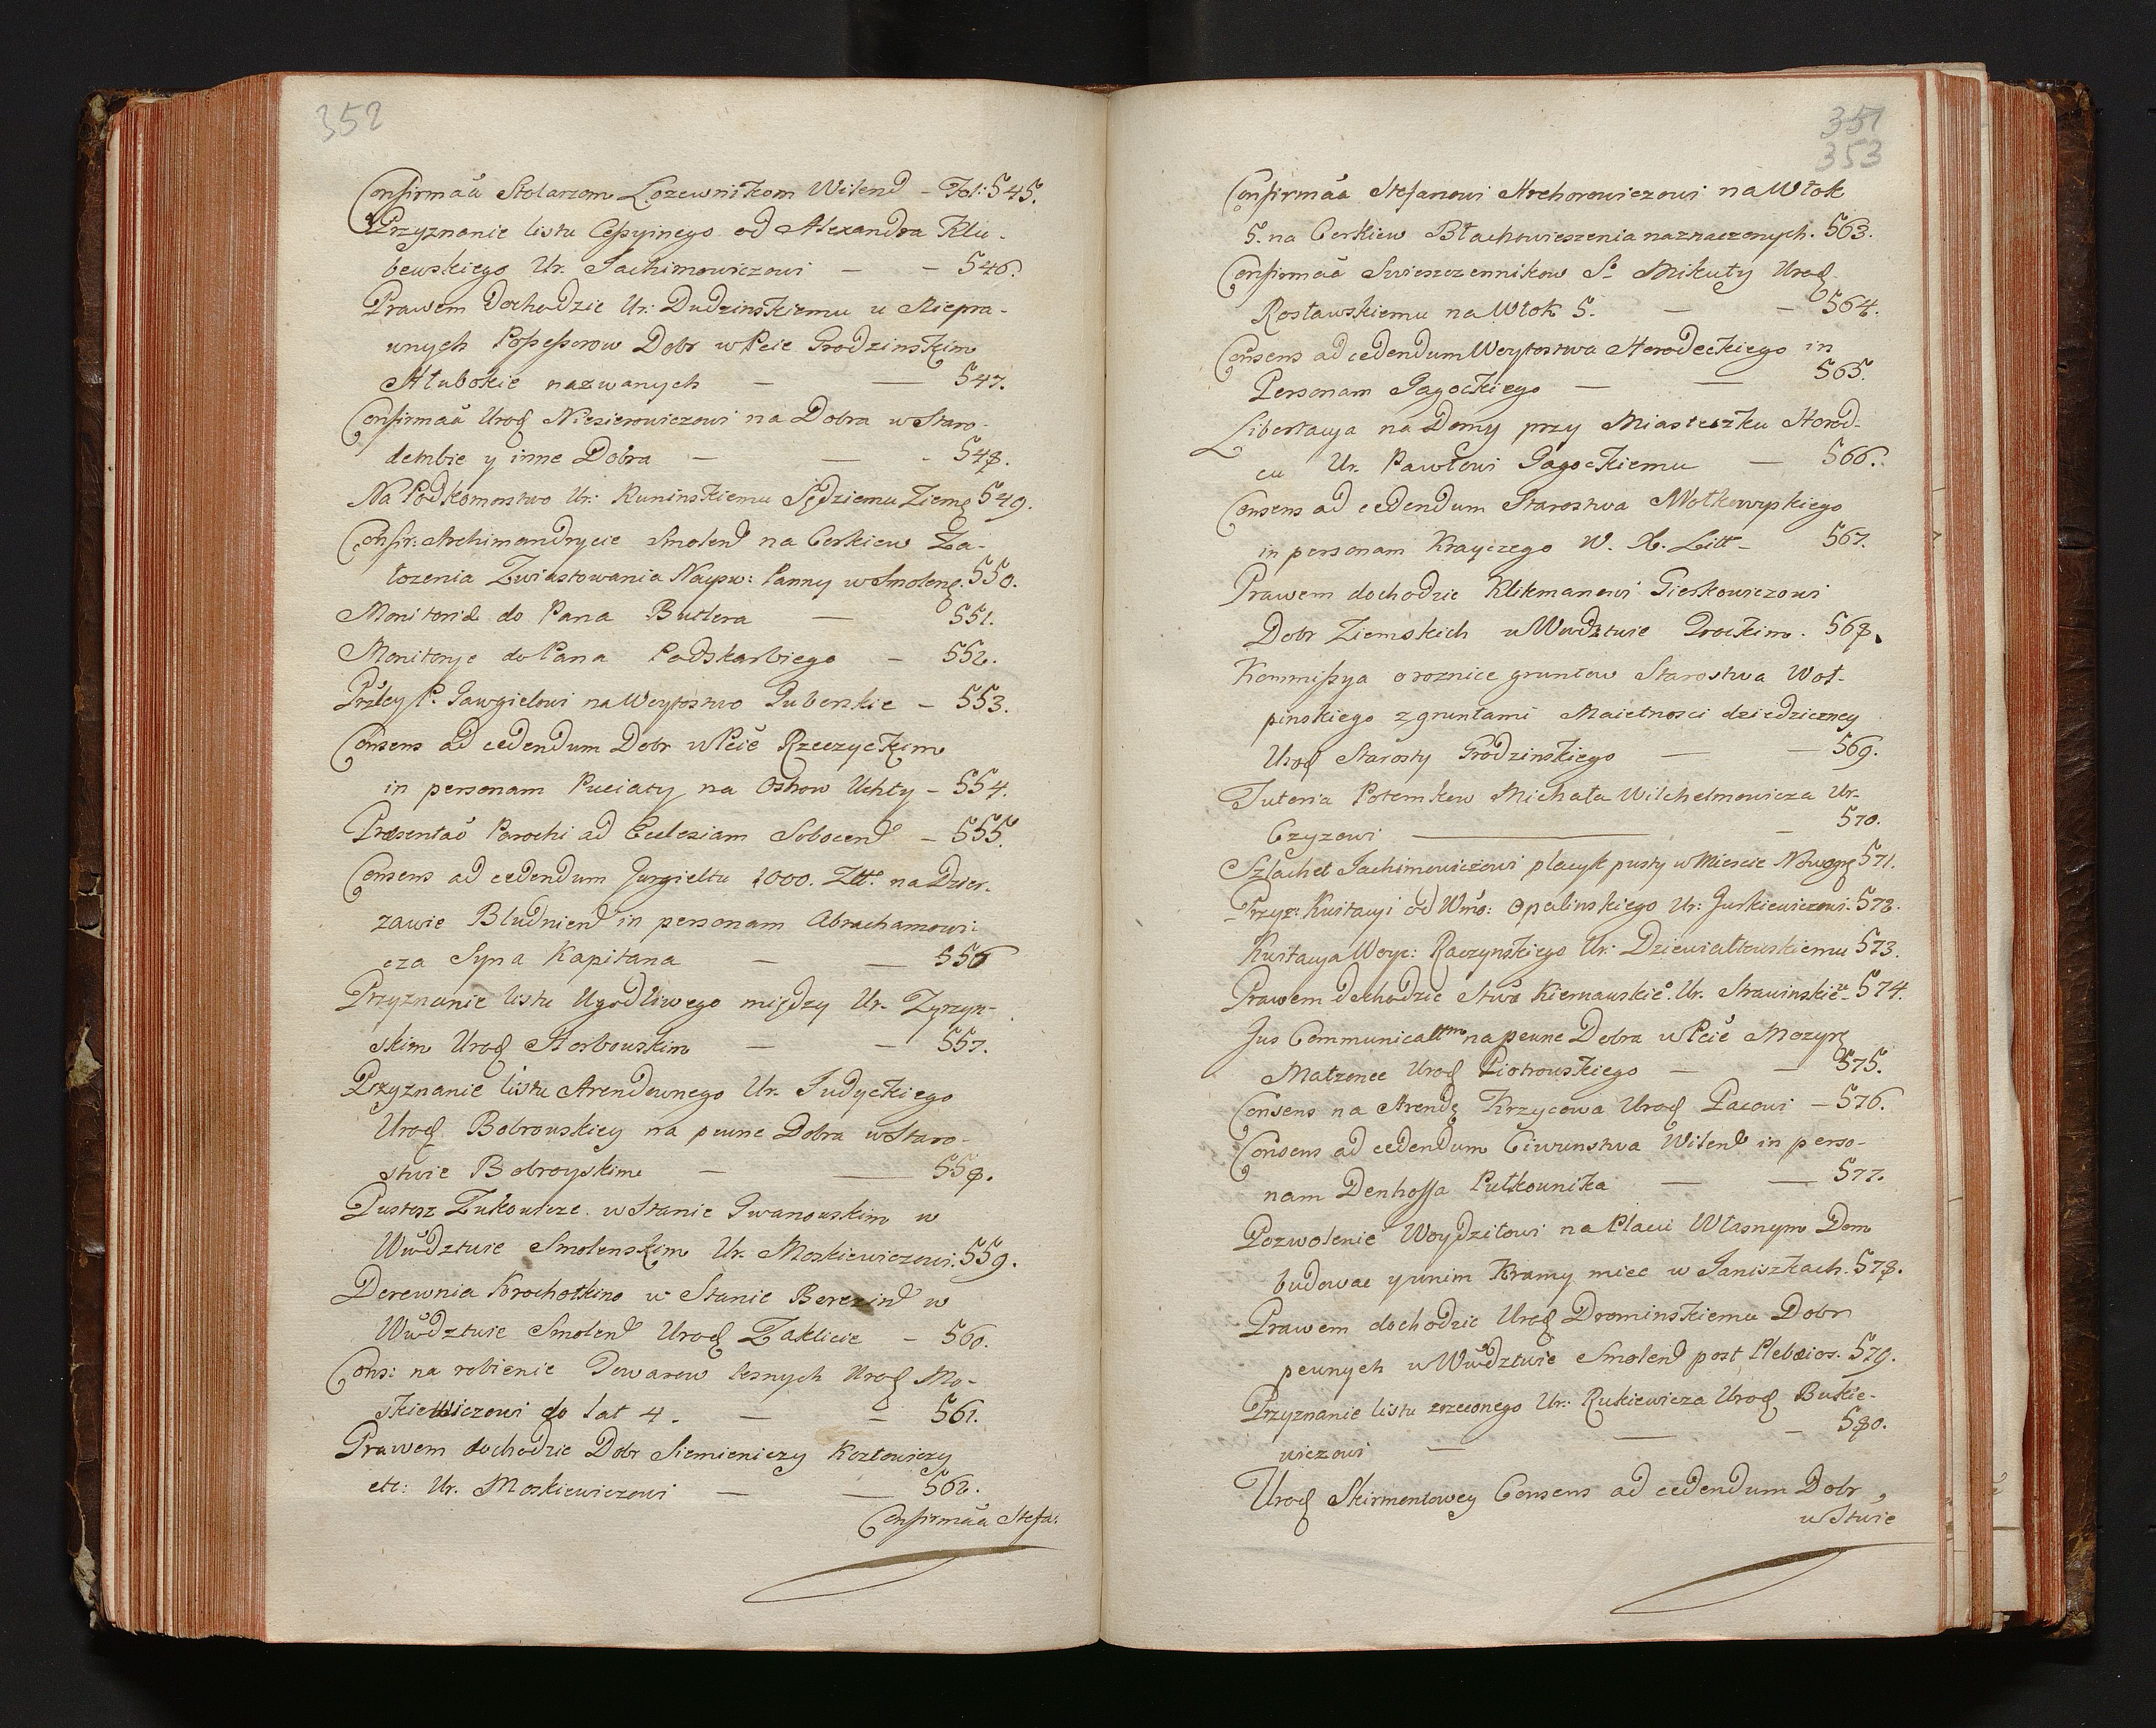 352
Confirmaã Stolarzom Lozewnikom Wilenđ – Fol: 545.
Przyznanie listu Cessyinego od Alexandra Klu-
bewskiego Ur. Jachimowiczowi – – 546.
Prawem dochodzic Ur: Dudzinskiemu u Niepra-
wnych Possessorow Dobr w Pcie Grodzinskim
Hłubokie nazwanych – — 547.
Confirmaã Urod Niezierowiczowi na Dobra w Staro-
dembie y inne Dobra – — - 548.
Na Podkomostwo Ur: Kuninskiemu Sędziemu Ziemę 549.
Confir: Archimandrycie Smolenđ na Cerkiew Za-
łozenia Zwiastowania Nayśw: Panny w Smolenę. 550.
Monitoriał do Pana Butlera — 551.
Monitorye do Pana Podskarbiego – 552.
Przley P. Gawgielowi na Woytostwo Guberskie – 553.
Consens ad cedendum Dobr w Pcie Rzeczyckim
in personam Puciaty na Ostrow Uchły – 554.
Præsentaõ Parochi ad Ecclesiam Sobocenđ – 555.
Consens ad cedendum Jurgieltu 1000. Złł. na Dzier-
zawie Bludnienđ in personam Abrachamowi-
cza Syna Kapitana – — 556
Przyznanie listu Ugodliwego między Ur. Zyrzyn-
skim Urod Horbowskim — – 557.
Przyznanie listu Arendownego Ur. Judyckiego
Urod Bobrowskiey na pewne Dobra w Staro-
stwie Bobroyskim – — 558.
Pustosz Zukowicze w Stanie Iwanowskim w
Wwdztwie Smolenskim Ur. Moskiewiczowi. 559.
Derewnia Krochotkino w Stanie Berezinđ w
Wwdztwie Smolenđ Urod Zaklicie – 560.
Cons: na robienie Towarow lesnych Urod Mo-
skiewiczowi do lat 4. — – 561.
Prawem dochodzic Dobr Siemieniczy Kozłowiczy
etc: Ur. Moskiewiczowi – — 562.
Confirmaã Stefa:
351
353
Confirmaã Stefanowi Horehorowiczowi na Włok
5. na Cerkiew Błachowieszenia naznaczonych. 563.
Confirmaã Swieszczennikow S. Mikuły Urod
Rosławskiemu na Włok 5. — – 564.
Consens ad cedendum Woytostwa Horodeckiego in
Personam Jagockiego — — 565.
Libertacya na Domy przy Miasteczku Horod-
cu Ur. Pawłowi Jagockiemu — 566.
Consens ad cedendum Starostwa Wołkowyskiego
in personam Krayczego W. X. Litt – 567.
Prawem dochodzic Klikmanowi Gierkowiczowi
Dobr Ziemskich w Wwdztwie Trockim. 568.
Kommissya o roznice gruntow Starostwa Woł-
pinskiego z gruntami Maietnosci dziedziczney
Urod Starosty Grodzinskiego — — 569.
Tutoria Potemkow Michała Wilchelmowicza Ur-
Czyzowi — – 570.
Szlachet Jachimowiczowi placyk pusty w Miescie Nowogrę 571.
Przyz: Kwitacyi od Wmo: Opalinskiego Ur: Gurkiewiczowi. 572.
Kwitacya Woyc: Raczynskiego Ur: Dziewiałtowskiemu 573.
Prawem dochodzic Stwa Kiernawskie°. Ur. Strawinskie – 574.
Jus Communicatm na pewne Dobra w Pcie Mozyrę
Małzonce Urod Piotrowskiego — — 575.
Consens na Arendę Krzycowa Urod Pacowi – 576.
Consens ad cedendum Ciwunstwa Wilenđ in perso-
nam Denhoffa Pułkownika — — 577.
Pozwolenie Woydziłowi na Placu Własnym Dom
budowac y w nim Kramy miec w Janiszkach. 578.
Prawem dochodzic Urod Drominskiemu Dobr
pewnych w Wwdztwie Smolenđ post Plebæios. 579.
Przyznanie listu zrzeconego Ur: Rukiewicza Urod Bukie-
wiczowi — — – 580.
Urod Skirmontowey Consens ad cedendum Dobr
w Stwie